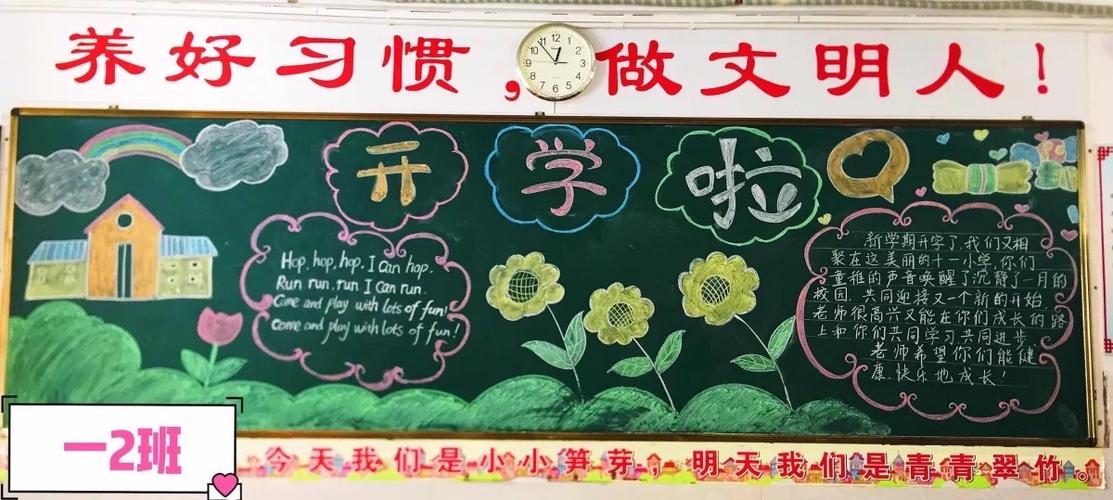 养好习惯，做文明人！
12
1
2
3
4
5
6
7
8
9
10
11
开学啦
Hop, hop, hop, I can hop.
Run run, run I can run.
Come and play with lots of fun!
Come and play with lots of fun!
新学期开学了，我们又相
聚在这美丽的十一小学，你们
童稚的声音唤醒了沉静了一月的
校园，共同迎接又一个新的开始，
老师很高兴又能在你们成长的路
上和你们共同学习共同进步，
老师希望你们能健
康、快乐地成长！
一2班
今天我们是小小笋芽，明天我们是青青翠竹。